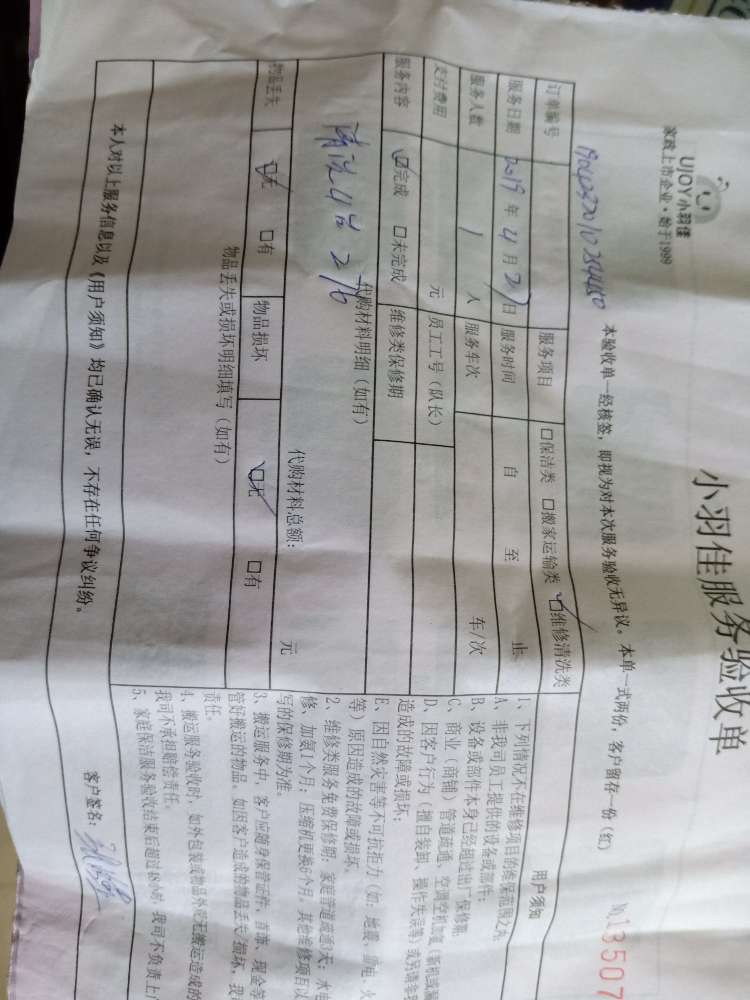 UJOY小羽佳
家政上市企业·始于1999
小羽佳服务验收单
№13507
本验收单一经核签，即视为对本次服务验收无异议。本单一式两份，客户留存一份（红）
订单编号
服务项目 □保洁类 □搬家运输类 ☑维修清洗类
服务日期 2019年4月27日 服务时间 自 至 止
服务人数 1人 服务车次 车/次
支付费用 元 员工工号（队长）
服务内容 ☑完成 □未完成 维修类保修期
代购材料明细（如有）
清洗4台 270
代购材料总额： 元
物品丢失 ☑无 □有 物品损坏 ☑无 □有
物品丢失或损坏明细填写（如有）
本人对以上服务信息以及《用户须知》均已确认无误，不存在任何争议纠纷。
用户须知
1、下列情况不在维修项目的维保范围之内：
A、非我司员工提供的设备或部件；
B、设备或部件本身已经超过出厂保修期；
C、商业（商铺）管道疏通，空调空机加氨（新机或漏
D、因客户行为（擅自装卸、操作失误等）或另请
造成的故障或损坏；
E、因自然灾害等不可抗拒力（如：地震、雷电、火
等）原因造成的故障或损坏。
2、维修类服务免费保修期：家庭管道疏通7天；水电
修、加氨1个月；压缩机更换6个月。其他维修项目以
写的保修期为准。
3、搬运服务中，客户应随身保管证件、首饰、现金等
管好搬运的物品。如因客户造成的物品丢失、损坏，我
责任。
4、搬运服务验收时，如外包装或物品外观无搬运造成的
我司不承担赔偿责任。
5、家庭保洁服务验收结束后超过48小时，我司不负责上门
客户签名：